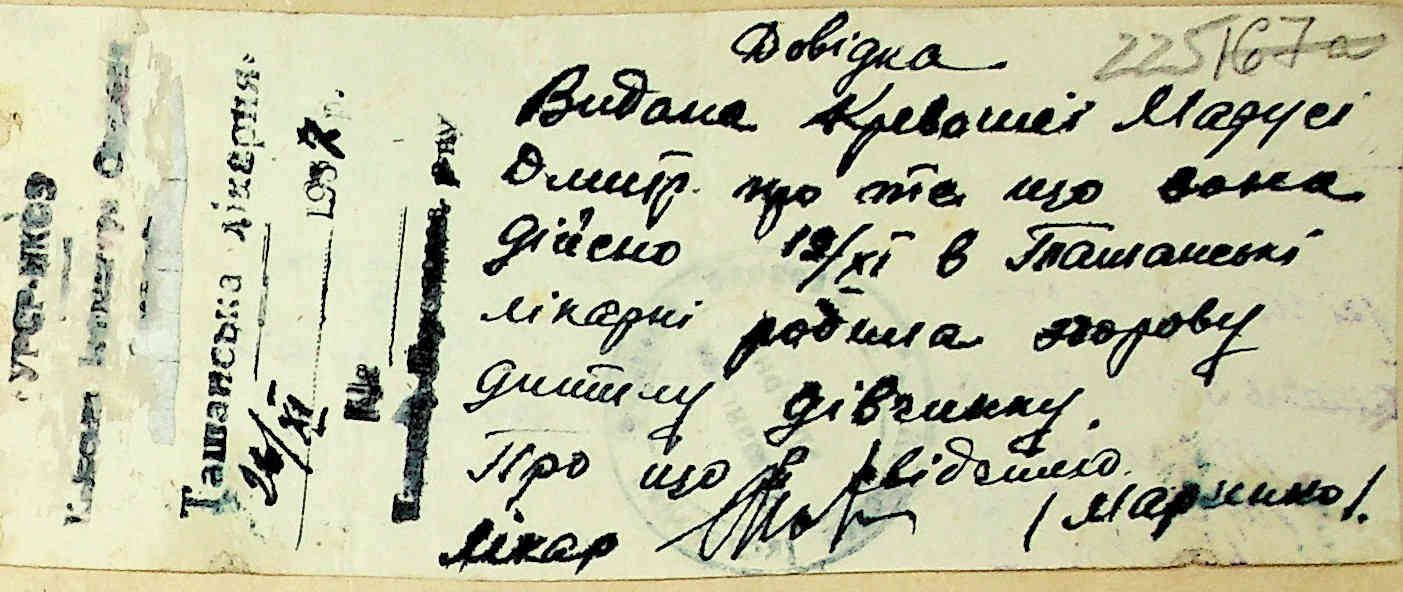 УРСР-НКОЗ
Ташанська лікарня
26/XI 1937 р.
№
225167а
Довідка
Видана Кревошиї Марусі
Дмитр. про те що вона
дійсно 19/XI в Ташанські
лікарні родила здорову
дитину дівчинку.
Про що й свідчимо.
Лікар (Марченко).